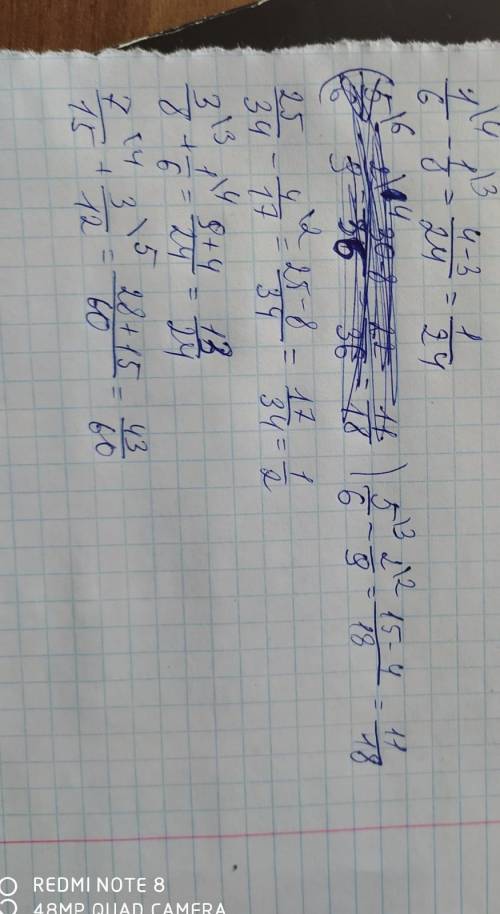 1\4/6 - 1\3/8 = 4-3/24 = 1/24
5\3/6 - 2\2/9 = 15-4/18 = 11/18
25/34 - 4\2/17 = 25-8/34 = 17/34 = 1/2
3\3/8 + 1\4/6 = 9+4/24 = 13/24
7\4/15 + 3\5/12 = 28+15/60 = 43/60
REDMI NOTE 8
48MP QUAD CAMERA